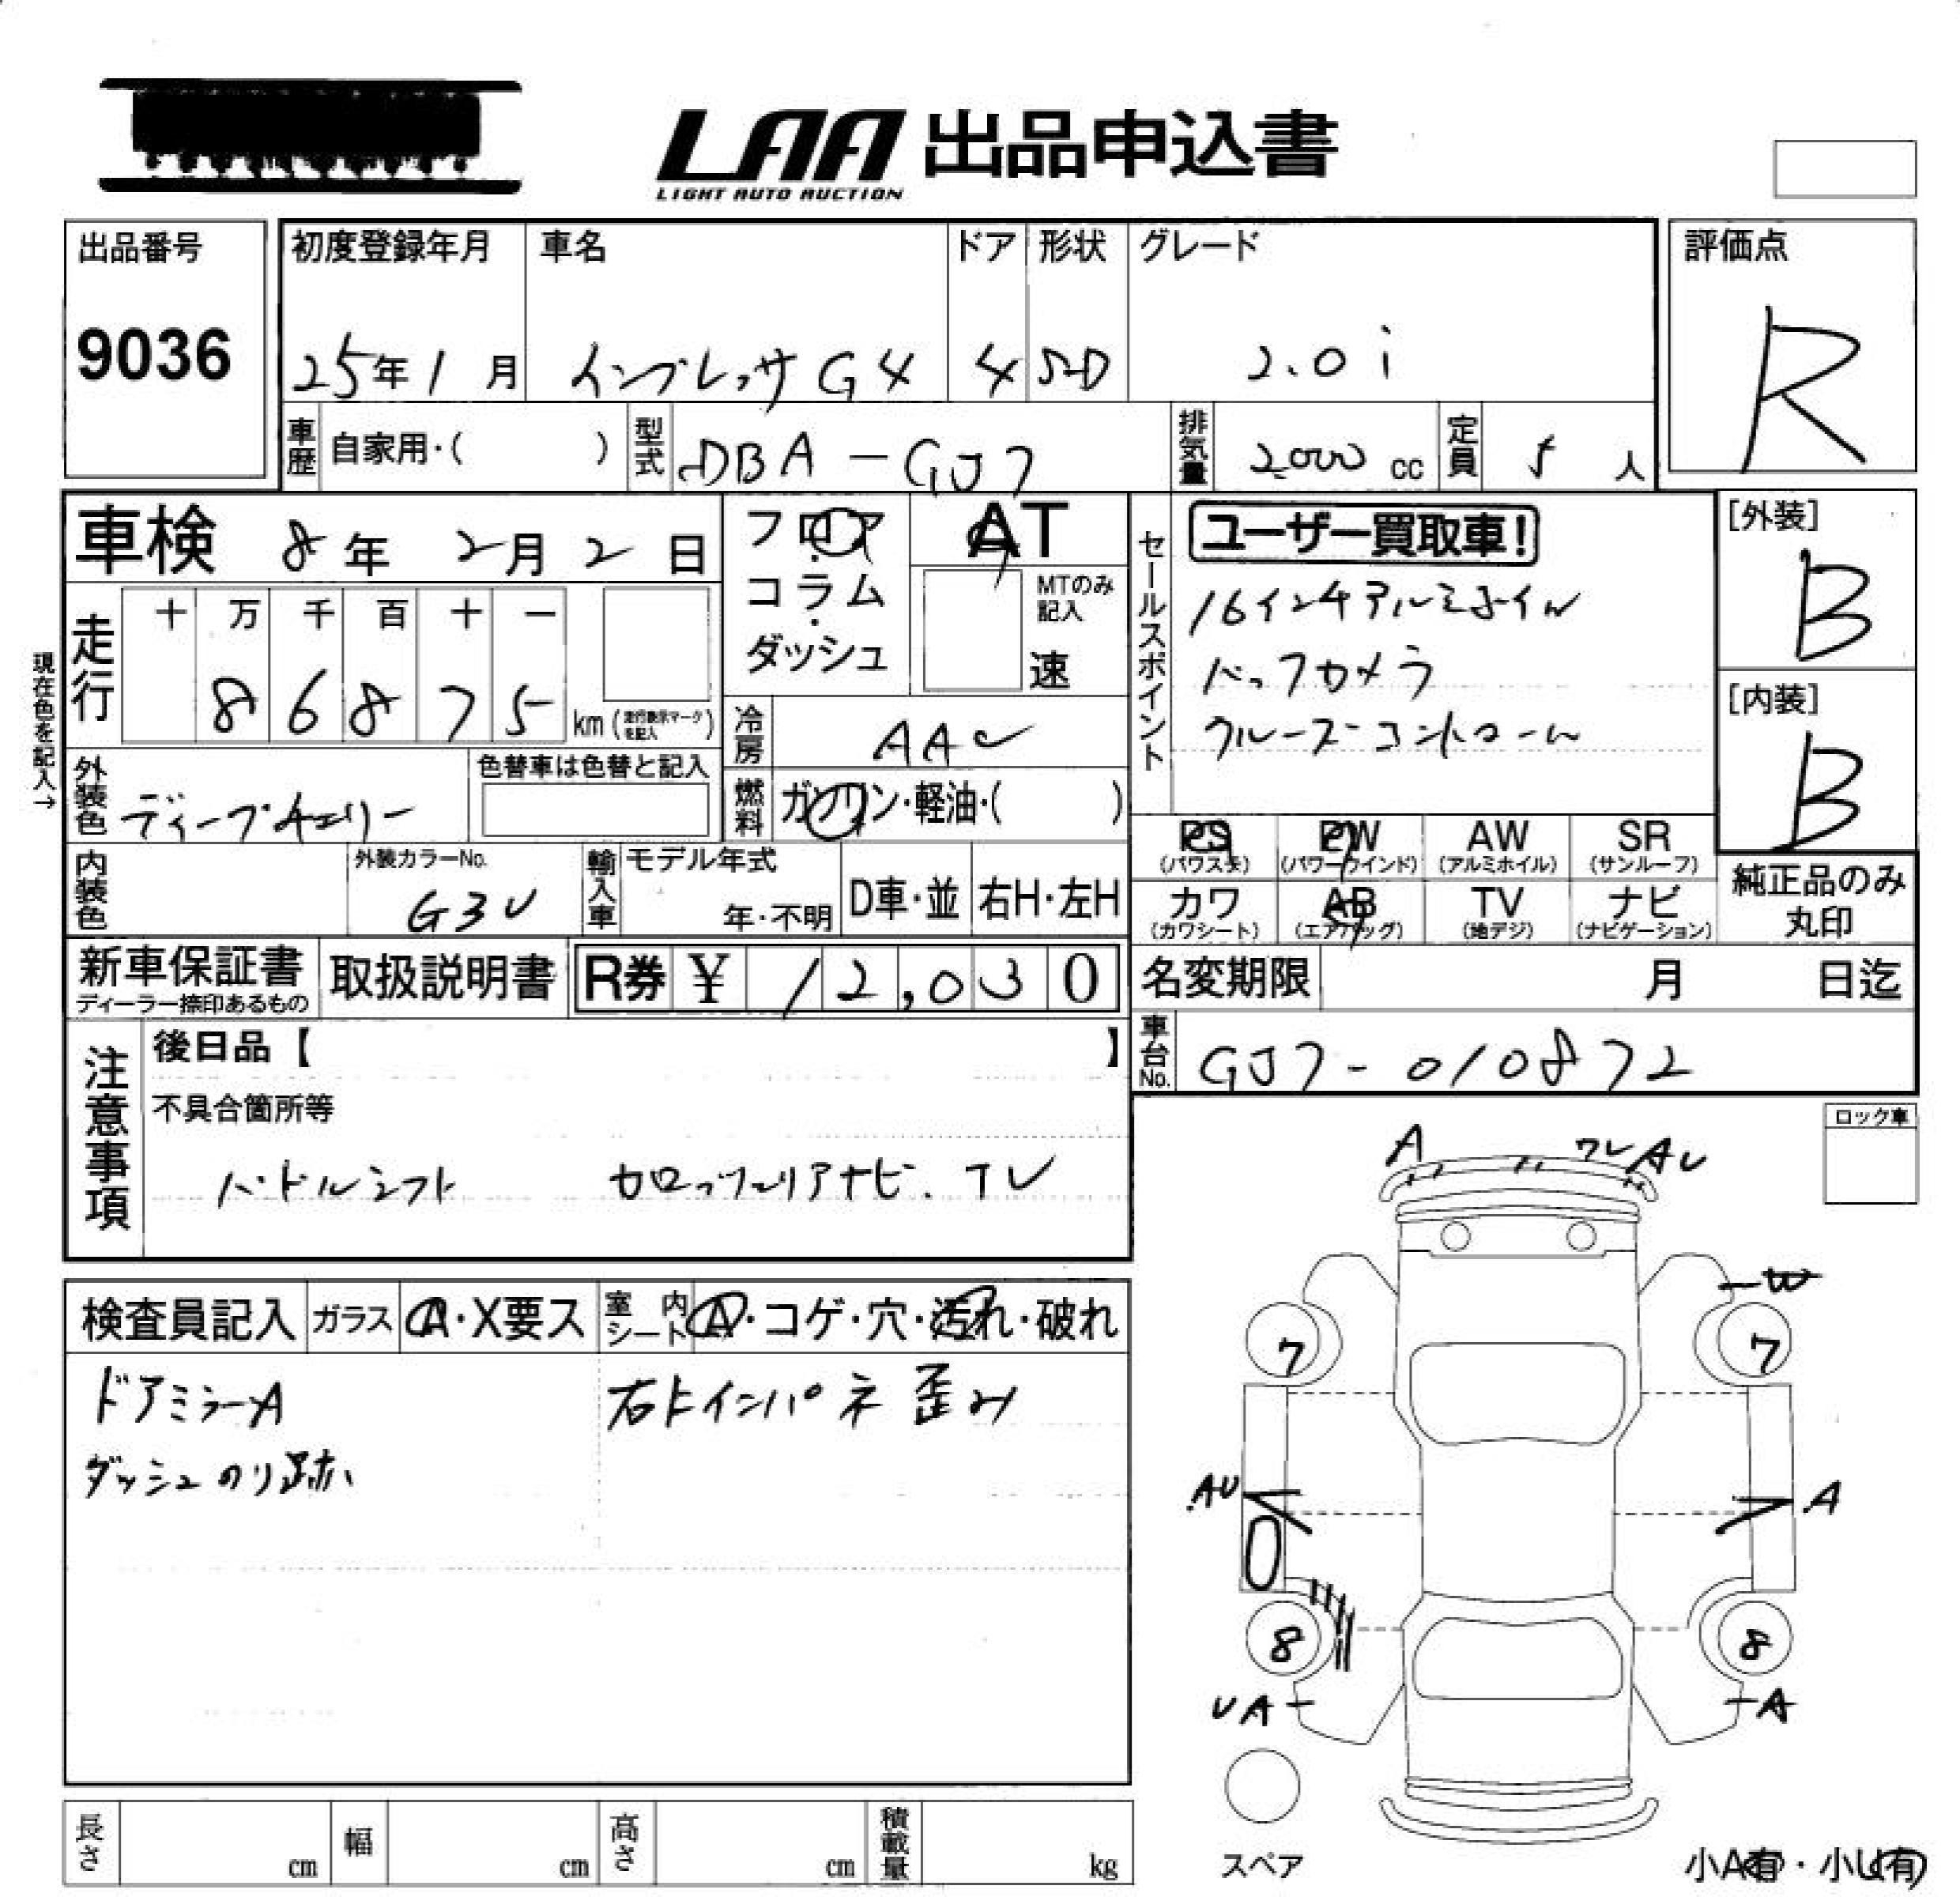 LAA 出品申込書
LIGHT AUTO AUCTION
出品番号
9036
初度登録年月
25年1月
車名
インプレッサG4
ドア
4
形状
SD
グレード
2.0i
評価点
R
車歴 自家用・( )
型式 DBA-GJ7
排気量 2000 cc
定員 5 人
車検 8年2月2日
フロア・コラム・ダッシュ
AT
MTのみ記入
速
セールスポイント
ユーザー買取車!
16インチアルミホイル
バックカメラ
クルーズコントロール
[外装]
B
[内装]
B
現在色を記入→
走行
十 万 千 百 十 一
8 6 8 7 5 km (走行表示マークを記入)
冷房 AAC
燃料 ガソリン・軽油・( )
外装色 ディープチェリー
色替車は色替と記入
PS (パワステ)
PW (パワーウインド)
AW (アルミホイル)
SR (サンルーフ)
カワ (カワシート)
AB (エアバッグ)
TV (地デジ)
ナビ (ナビゲーション)
純正品のみ丸印
内装色
外装カラーNo.
G3U
輸入車
モデル年式
年・不明
D車・並
右H・左H
新車保証書
ディーラー捺印あるもの
取扱説明書
R券 ¥ 12,030
名変期限 月 日迄
車台No. GJ7-010872
注意事項
後日品【 】
不具合箇所等
パドルシフト カロッツェリアナビ.TV
ロック車
検査員記入
ガラス A・X要ス
室内シート A・コゲ・穴・汚れ・破れ
ドアミラーA
右リインパネ歪み
ダッシュのり跡
A
ワレAU
W
7
7
AU
A
8
8
UA
A
スペア
小A有・小U有
長さ cm
幅 cm
高さ cm
積載量 kg